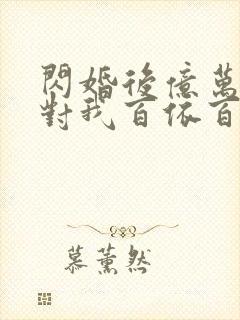 閃婚後億萬
對我百依百
慕薰然